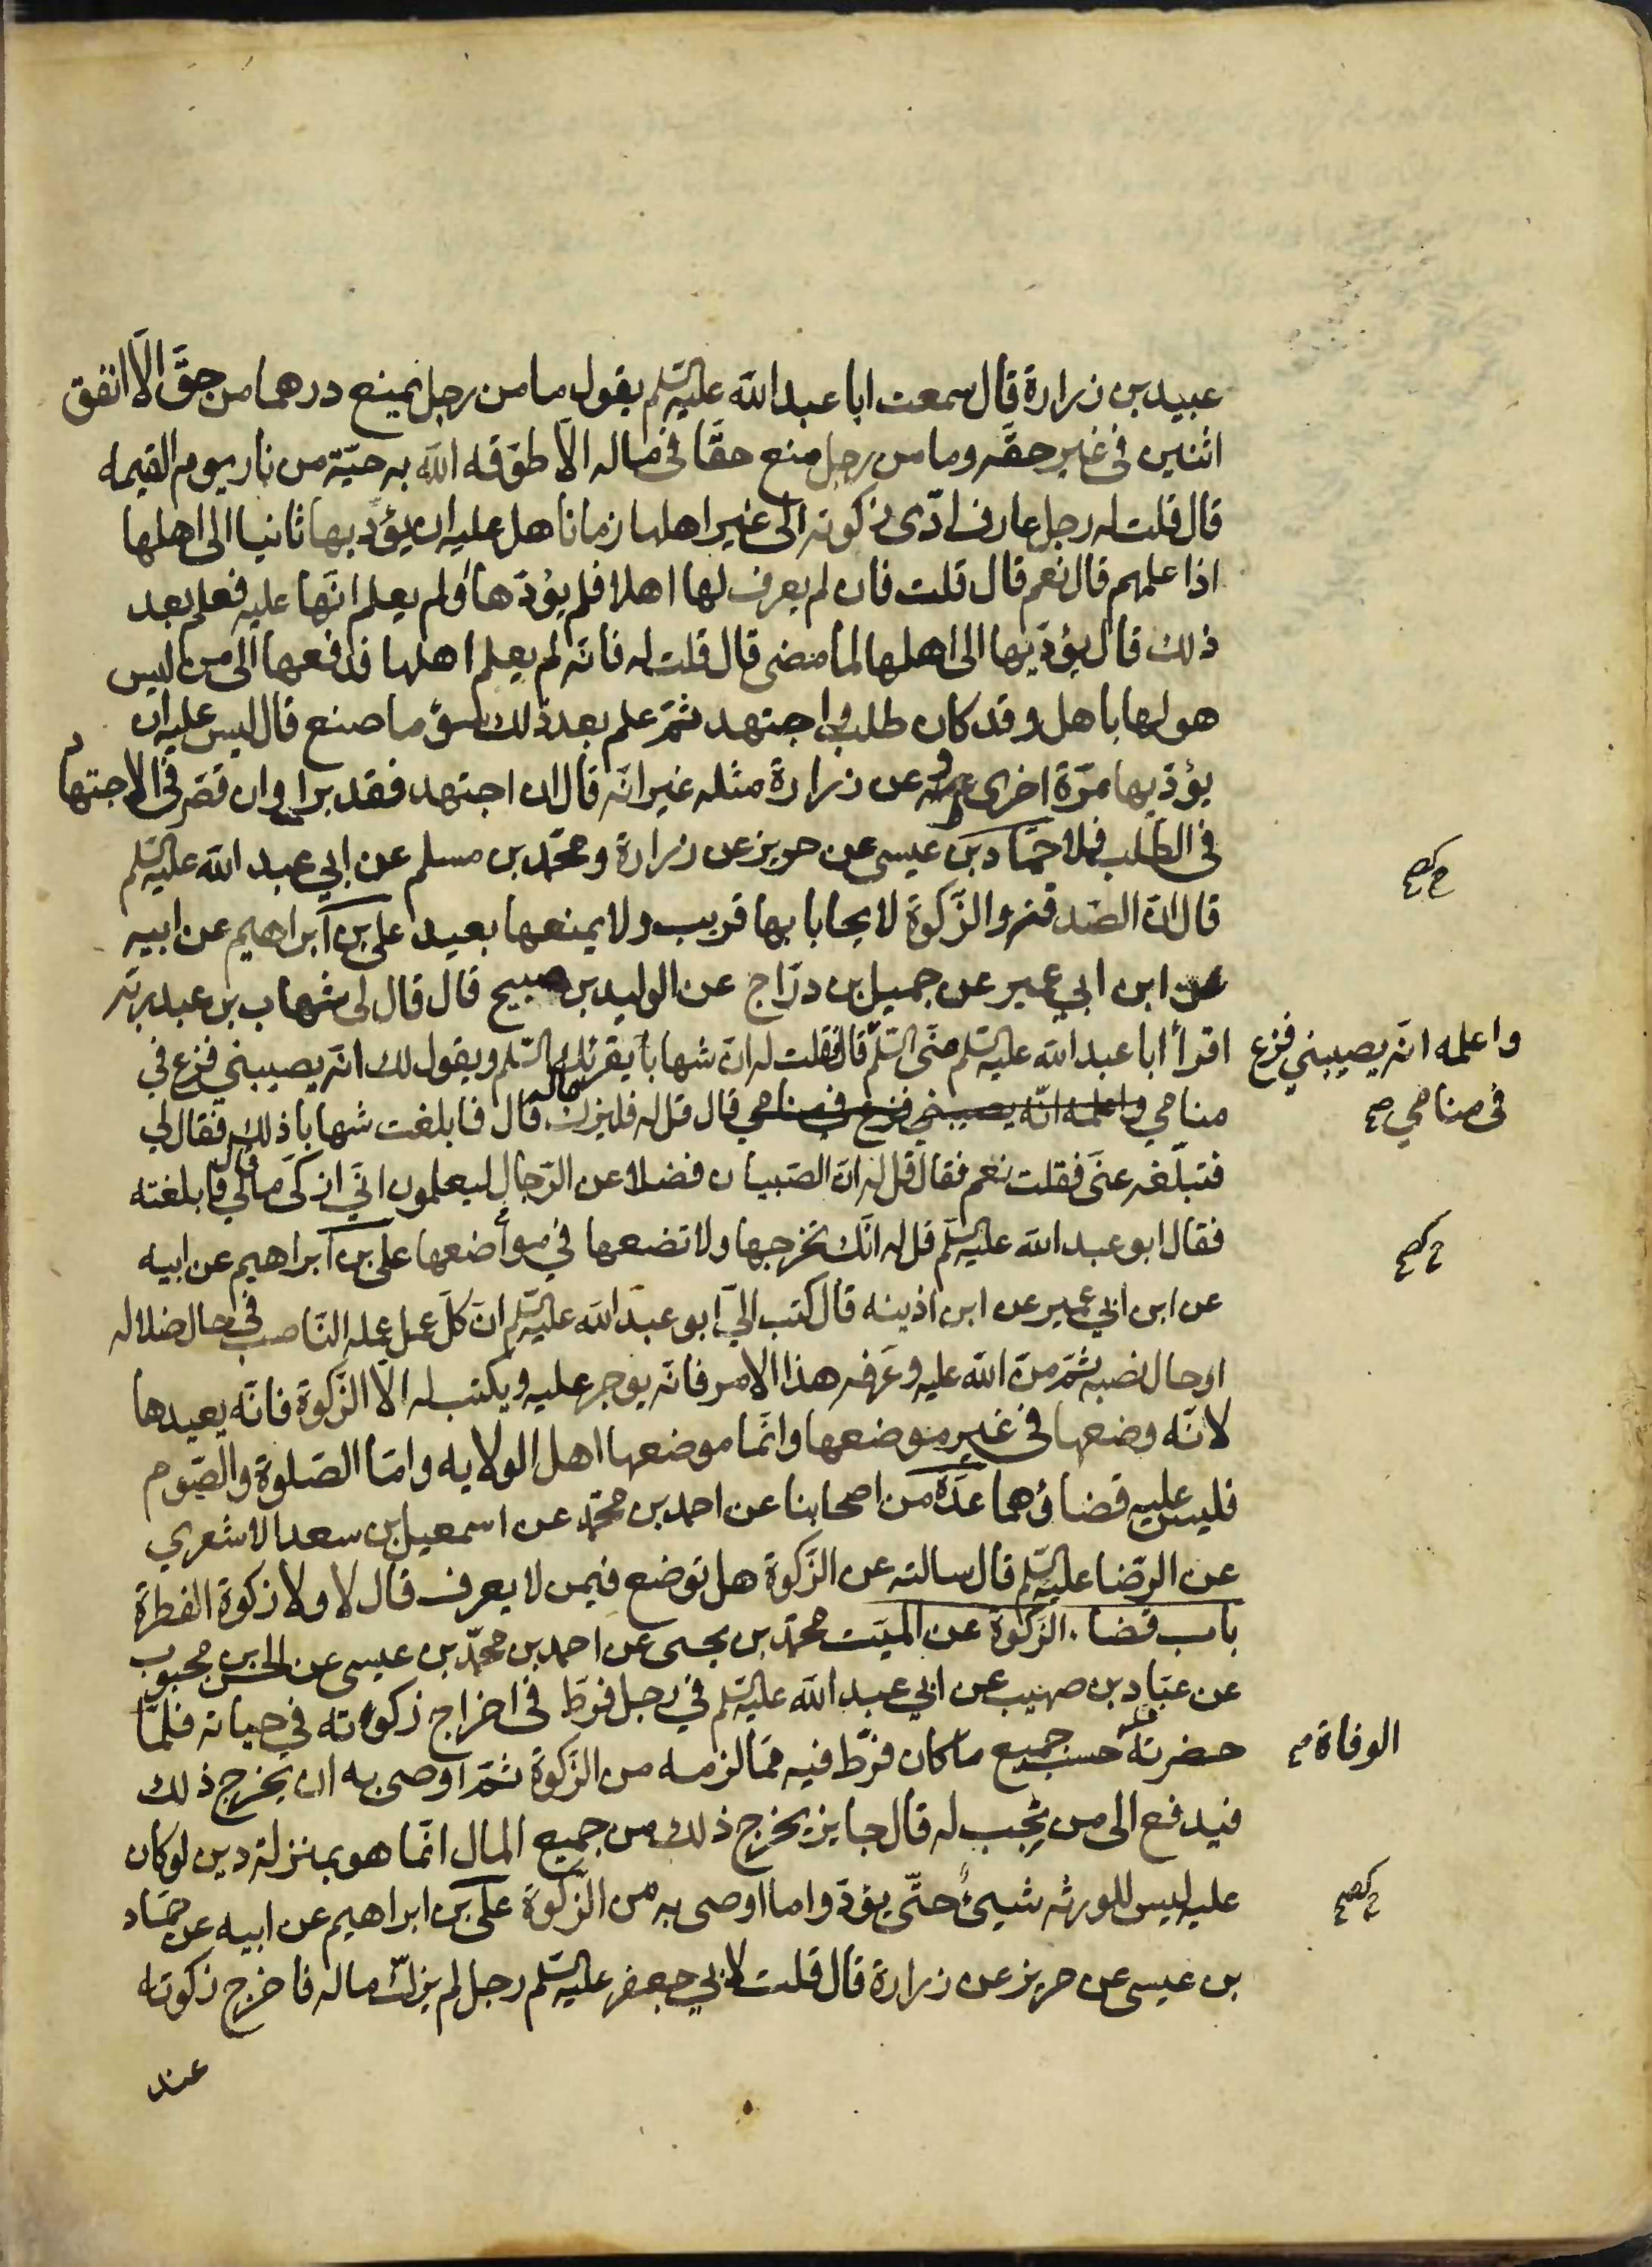 عبيد بن زرارة قال سمعت ابا عبد الله عليه السلم يقول ما من رجل يمنع درهما من حقّ الّا انفق
اثنين في غير حقّه وما من رجل منع حقّا في ماله الّا طوّقه الله به حيّة من نار يوم القيمه
قال قلت له رجل عارف ادّى زكوته الى غير اهلها زمانا هل عليه ان يؤدّيها ثانيا الى اهلها
اذا علمهم قال نعم قال قلت فان لم يعرف لها اهلا فلم يؤدّها او لم يعلم انّها عليه فعلم بعد
ذلك قال يؤدّيها الى اهلها لما مضى قال قلت له فانّه لم يعلم اهلها فدفعها الى من ليس
هو لها باهل وقد كان طلب واجتهد ثمّ علم بعد ذلك سوء ما صنع قال ليس عليه ان
يؤدّيها مرّة اخرى وعن زرارة مثله غير انّه قال ان اجتهد فقد برا وان قصّر في الاجتهاد
في الطّلب فلا حمّاد بن عيسى عن حريز عن زرارة ومحمّد بن مسلم عن ابي عبد الله عليه السلم
قال انّ الصّدقة والزّكوة لا يحابا بها قريب ولا يمنعها بعيد علي بن ابراهيم عن ابيه
عن ابن ابي عمير عن جميل بن درّاج عن الوليد بن صبيح قال قال لي شهاب بن عبد ربّه
اقرأ ابا عبد الله عليه السلم منّى السّلم قال فقلت له انّ شهابا يقرئك السّلم ويقول لك انّه يصيبني فزع في
واعلمه انّه يصيبني فزع
في منامي صح
منامي واعلمه انّه يصيبني فزع في منامي قال قل له فليزك ماله قال فابلغت شهابا ذلك فقال لي
فتبلّغه عنّى فقلت نعم فقال قل له انّ الصّبيان فضلا عن الرّجال ليعلمون انّي ازكّى مالي قال فابلغته
فقال ابو عبد الله عليه السلم قل له انّك تخرجها ولا تضعها في مواضعها علي بن ابراهيم عن ابيه
عن ابن ابي عمير عن ابن اذينه قال كتب اليّ ابو عبد الله عليه السلم انّ كلّ عمل عمله النّاصب في حال ضلاله
او حال نصبه ثمّ منّ الله عليه وعرّفه هذا الامر فانّه يوجر عليه ويكتب له الّا الزّكوة فانّه يعيدها
لانّه وضعها في غير موضعها وانّما موضعها اهل الولايه وامّا الصّلوة والصّوم
فليس عليه قضاؤهما عدّة من اصحابنا عن احمد بن محمّد عن اسمعيل بن سعد الاشعري
عن الرّضا عليه السّلم قال سالته عن الزّكوة هل توضع فيمن لا يعرف قال لا ولا زكوة الفطرة
باب قضاء الزّكوة عن الميّت محمّد بن يحيى عن احمد بن محمّد بن عيسى عن الحسن بن محبوب
عن عبّاد بن صهيب عن ابي عبد الله عليه السلم في رجل فرّط في اخراج زكوته في حياته فلمّا
حضرته حسب جميع ما كان فرّط فيه ممّا لزمه من الزّكوة ثمّ اوصى به ان يخرج ذلك
الوفاة
فيدفع الى من يجب له قال جايز يخرج ذلك من جميع المال انّما هو بمنزلة دين لو كان
عليه ليس للورثه شيئ حتّى يؤدّوا ما اوصى به من الزّكوة علي بن ابراهيم عن ابيه عن حمّاد
بن عيسى عن حريز عن زرارة قال قلت لابي جعفر عليه السّلم رجل لم يزكّ ماله فاخرج زكوته
عند